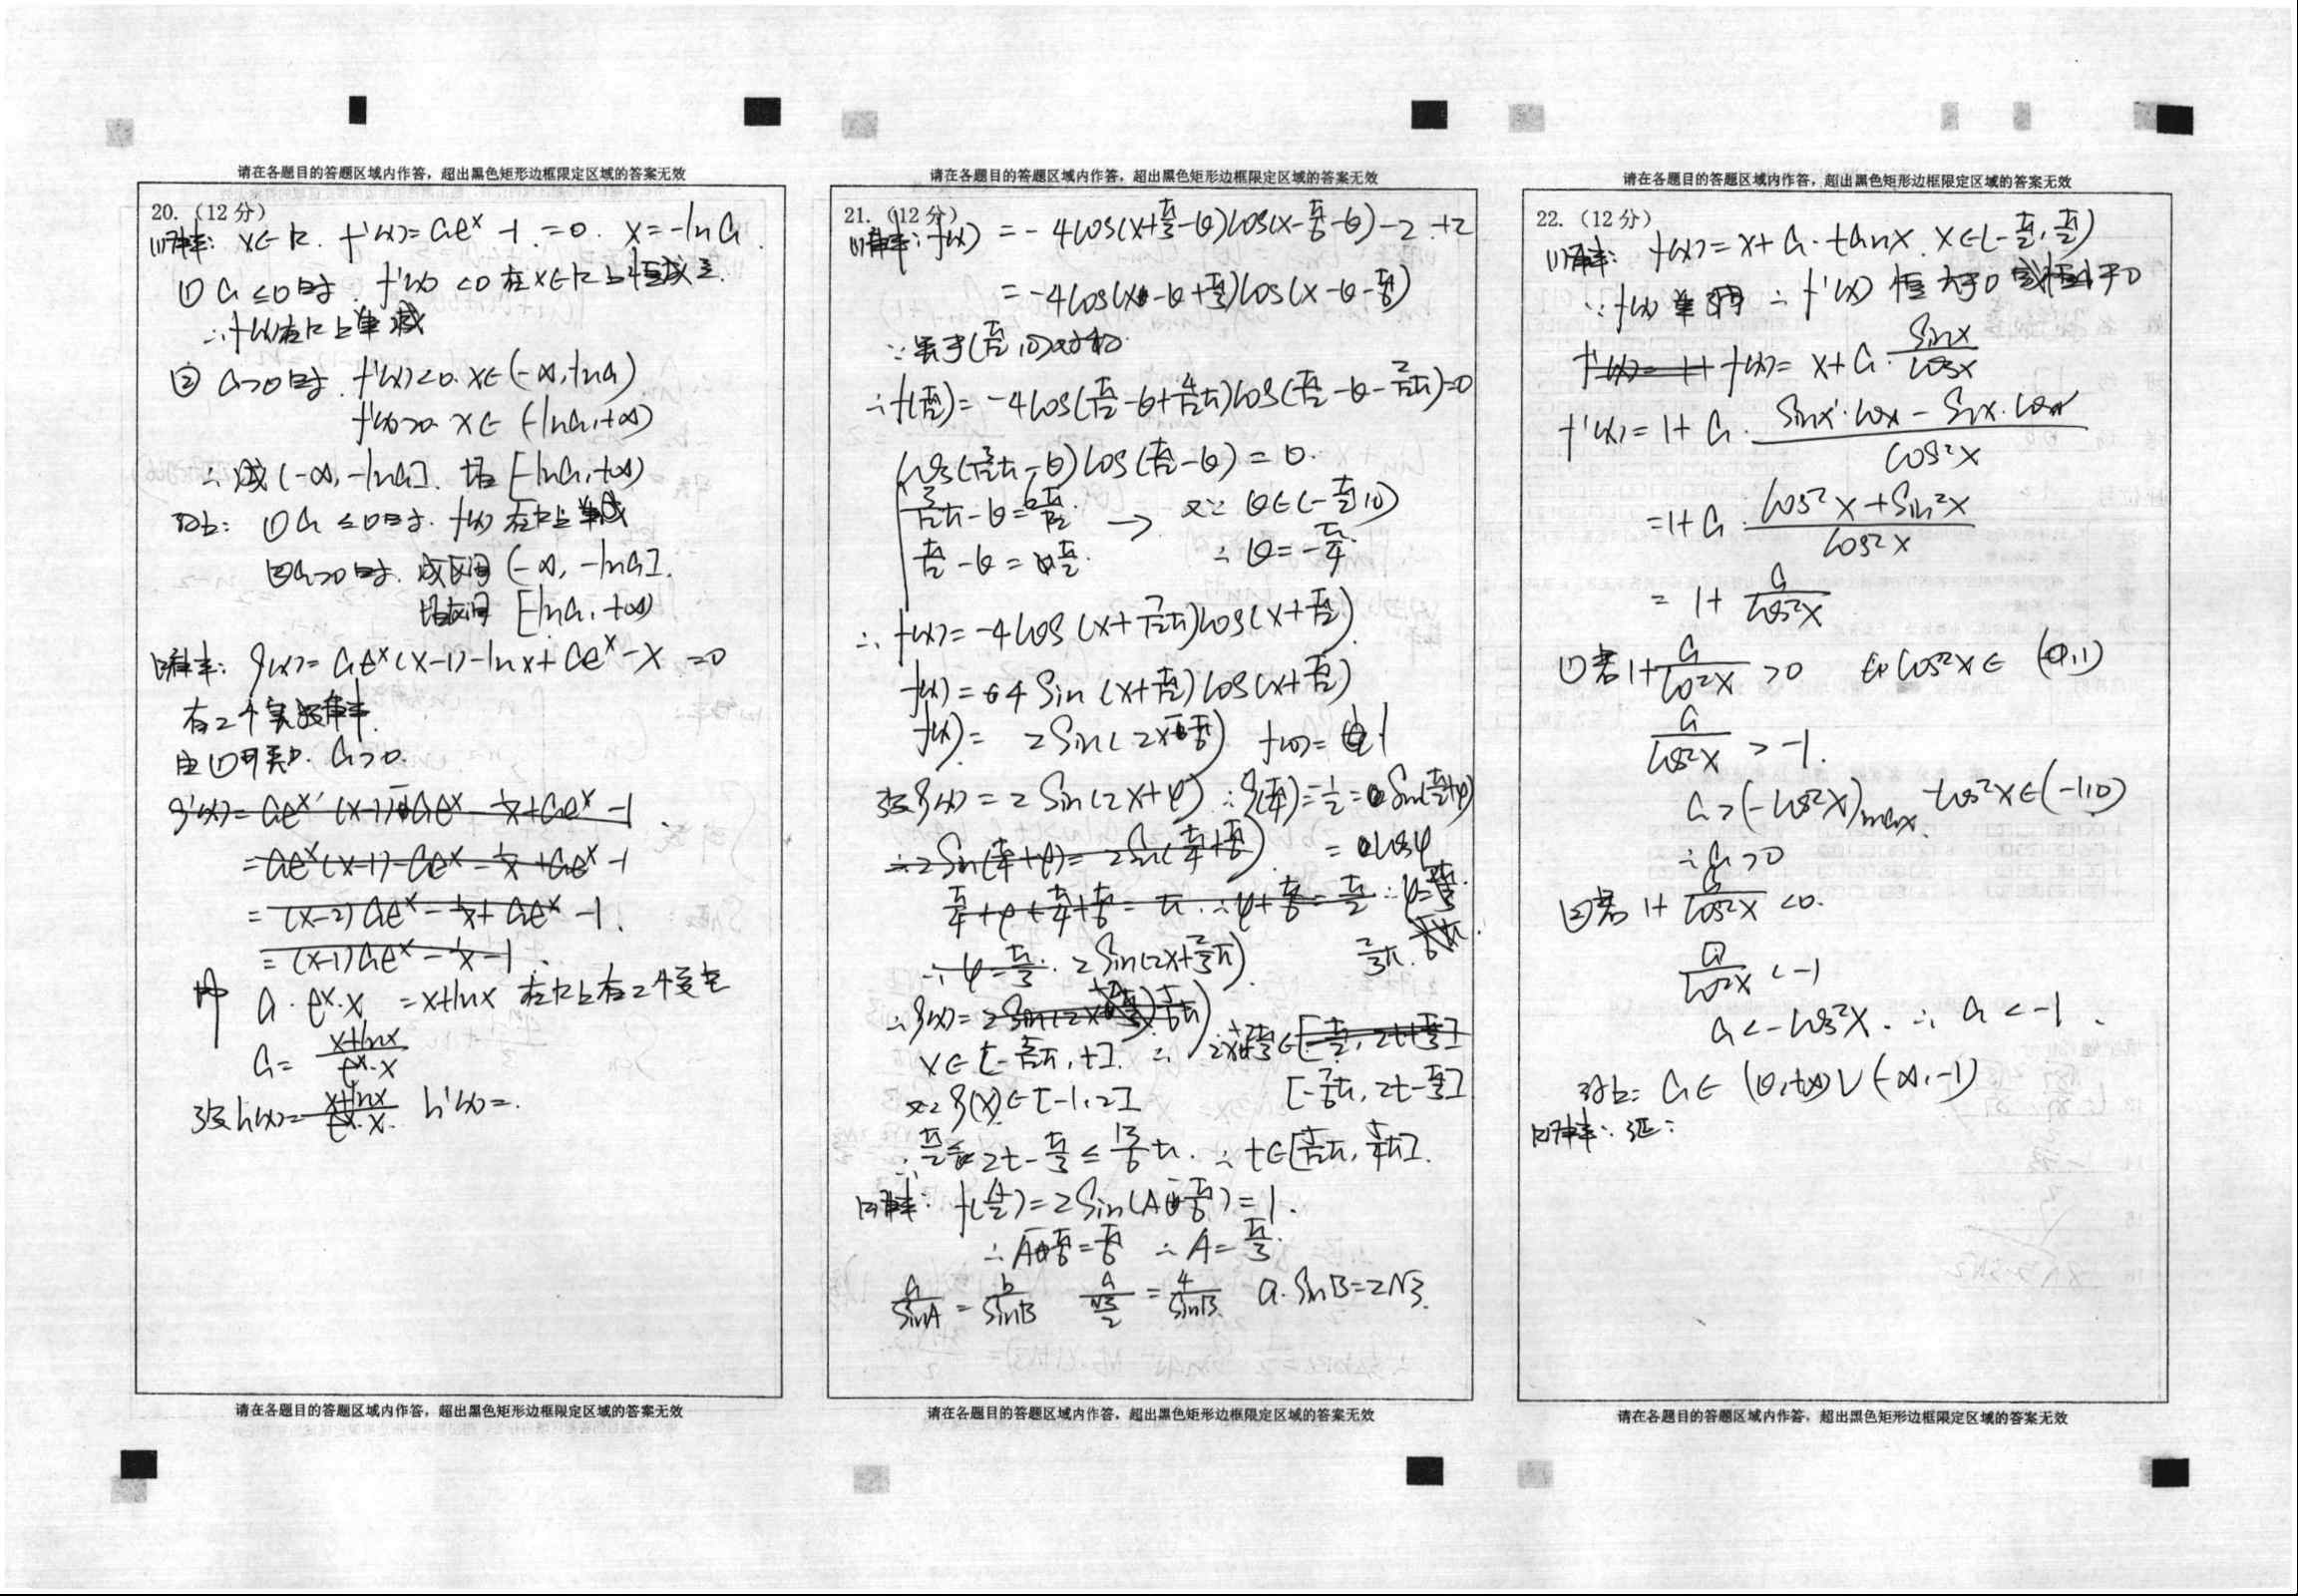 请在各题目的答题区域内作答，超出黑色矩形边框限定区域的答案无效
20. （12 分）
(1)解: x∈R. f'(x)=ae^x -1 =0. x=-lna.
① a≤0时. f'(x)<0在x∈R上恒成立.
∴f(x)在R上单减
② a>0时. f'(x)<0. x∈(-∞,-lna)
f'(x)>0 x∈(-lna,+∞)
∴减(-∞,-lna]. 增[-lna,+∞)
综上: ①a≤0时. f(x)在R上单减
②a>0时. 减区间(-∞,-lna].
增区间[-lna,+∞)
(2)解: g(x)=ae^x(x-1)-lnx+ae^x-x=0
有2个实数解.
由(1)可知. a>0.
g'(x)=
=ae^x(x-1)-ae^x-1/x+ae^x-1
=(x-2)ae^x-1/x+ae^x-1.
=(x-1)ae^x-1/x-1.
即 a·e^x·x =x+lnx 在R上有2个交点
a=(x+lnx)/(e^x·x)
设h(x)=(x+lnx)/(e^x·x). h'(x)=.
请在各题目的答题区域内作答，超出黑色矩形边框限定区域的答案无效
请在各题目的答题区域内作答，超出黑色矩形边框限定区域的答案无效
21. （12 分）
(1)解: f(x) =-4cos(x+π/3-θ)cos(x-π/6-θ)-2+2
=-4cos(x-θ+π/3)cos(x-θ-π/6)
∵关于(π/12,0)对称
∴f(π/12)=-4cos(π/12-θ+4/12π)cos(π/12-θ-2/12π)=0
又∵ θ∈(-π/2,0)
∴θ=-π/4.
∴f(x)=-4cos(x+7/12π)cos(x+π/12).
f(x)=4sin(x+π/12)cos(x+π/12)
设g(x)=2sin(2x+φ)
x∈[-5/12π,t].
[-7/6π,2t-π/3]
又∵g(x)∈[-1,2]
∴π/2≤2t-π/3≤13/6π. ∴t∈[5/12π,5/4π].
(2)解: f(A/2)=2sin(A-π/6)=1.
∴A-π/6=π/6 ∴A=π/3.
a/sinA=b/sinB a/(√3/2)=4/sinB. a·sinB=2√3.
请在各题目的答题区域内作答，超出黑色矩形边框限定区域的答案无效
请在各题目的答题区域内作答，超出黑色矩形边框限定区域的答案无效
22. （12 分）
(1)解: f(x)=x+a·tanx. x∈(-π/2,π/2)
∵f(x)单调 ∴f'(x)恒大于0或恒小于0
f(x)=x+a·sinx/cosx
f'(x)=1+a·(sinx'·cosx-sinx·cosx')/cos²x
=1+a·(cos²x+sin²x)/cos²x
=1+a/cos²x
①若1+a/cos²x>0 cos²x∈(0,1)
a/cos²x>-1.
a>(-cos²x)max. -cos²x∈(-1,0)
∴a>0
②若1+a/cos²x<0.
a/cos²x<-1
a<-cos²x. ∴a<-1.
综上: a∈(0,+∞)∪(-∞,-1)
(2)解: 证:
请在各题目的答题区域内作答，超出黑色矩形边框限定区域的答案无效